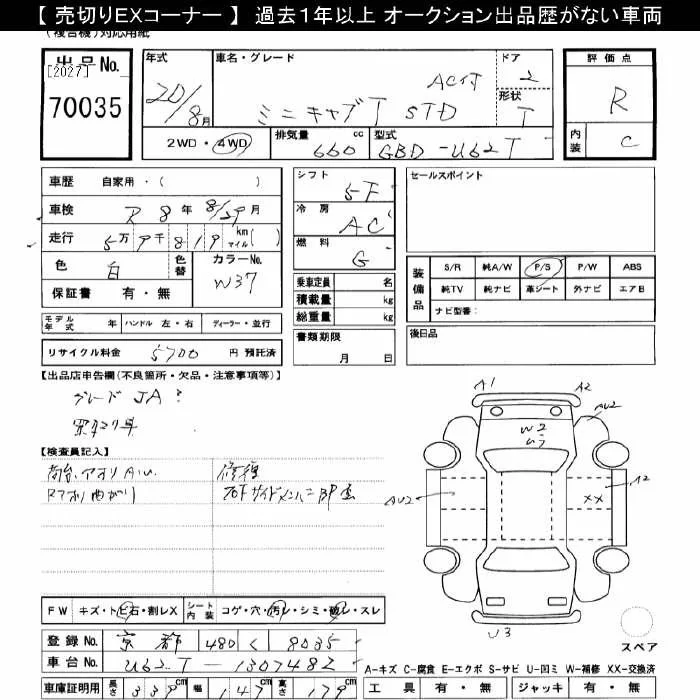 【 売切りEXコーナー 】 過去１年以上 オークション出品歴がない車両
(複合機) 対応用紙
出品 No.
[2027]
70035
年式
20/8月
車名・グレード
AC付
ミニキャブT STD
ドア
2
形状
T
評価点
R
内装
C
2WD・4WD
排気量 cc
660
型式
GBD-U62T
車歴 自家用・( )
車検 R 8年 8/29月
走行 5万 9千 8 1 9 km マイル( )
色 白 色替
カラーNo.
W37
保証書 有・無
モデル年式 年 ハンドル 左・右 ディーラー・並行
リサイクル料金 5700 円 預託済
シフト
5F
冷房
AC
燃料
G
乗車定員 名
積載量 kg
総重量 kg
書類期限
月 日
セールスポイント
装備品
S/R 純A/W P/S P/W ABS
純TV 純ナビ 革シート 外ナビ エアB
ナビ型番:
後日品
【出品店申告欄(不良箇所・欠品・注意事項等)】
グレード JA ?
【検査員記入】
荷台、アオリ A.U.
Rアオリ曲がり
修復
A1
A2
AU2
W2
AU2
A2
XX
U3
スペア
FW キズ・トビ石・割レX シート内装 コゲ・穴・汚レ・シミ・破レ・スレ
登録No. 京都 480 く 8035
車台No. U62T-1307482
車庫証明用 長さ 339cm 幅 147cm 高さ 179cm
A-キズ C-腐食 E-エクボ S-サビ U-凹ミ W-補修 XX-交換済
工具 有・無 ジャッキ 有・無